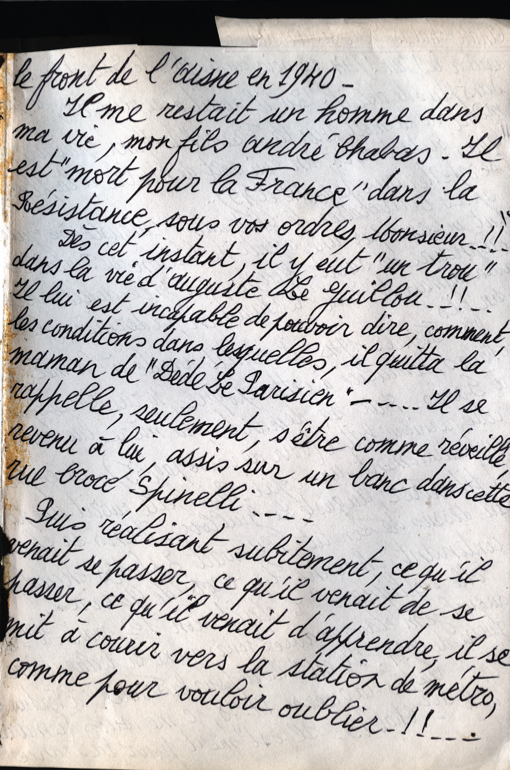 le front de l'Aisne en 1940 -
Il me restait un homme dans
ma vie, mon fils andré Chabas - Il
est "mort pour la France" dans la
Résistance, sous vos ordres, Monsieur..!!"
Dès cet instant, il y eut "un trou"
dans la vie d'auguste Le Guillou..!!...
Il lui est incapable de pouvoir dire, comment,
les conditions dans lesquelles, il quitta la
maman de "Dédé Le Parisien" - .... Il se
rappelle, seulement, s'être comme réveillé,
revenu à lui, assis sur un banc dans cette
rue Crocé Spinelli ----
Puis réalisant subitement, ce qu'il
venait se passer, ce qu'il venait de se
passer, ce qu'il venait d'apprendre, il se
mit à courir vers la station de métro,
comme pour vouloir oublier..!!...